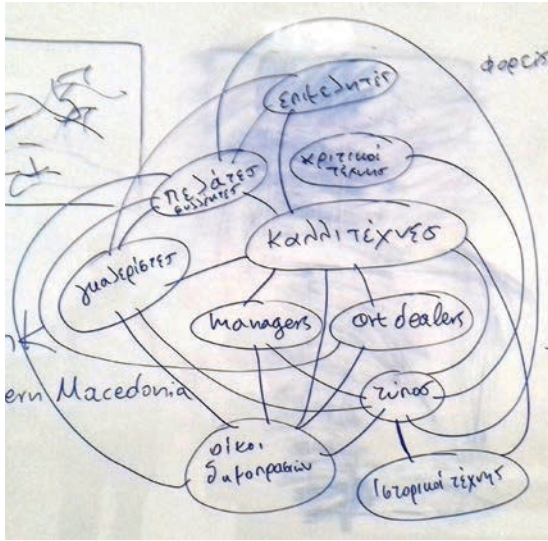 φορείς
επιμελητές
κριτικοί
τέχνης
πελάτες
συλλέκτες
καλλιτέχνες
γκαλερίστες
managers
art dealers
ern Macedonia
τύπος
οίκοι
δημοπρασιών
Ιστορικοί τέχνης